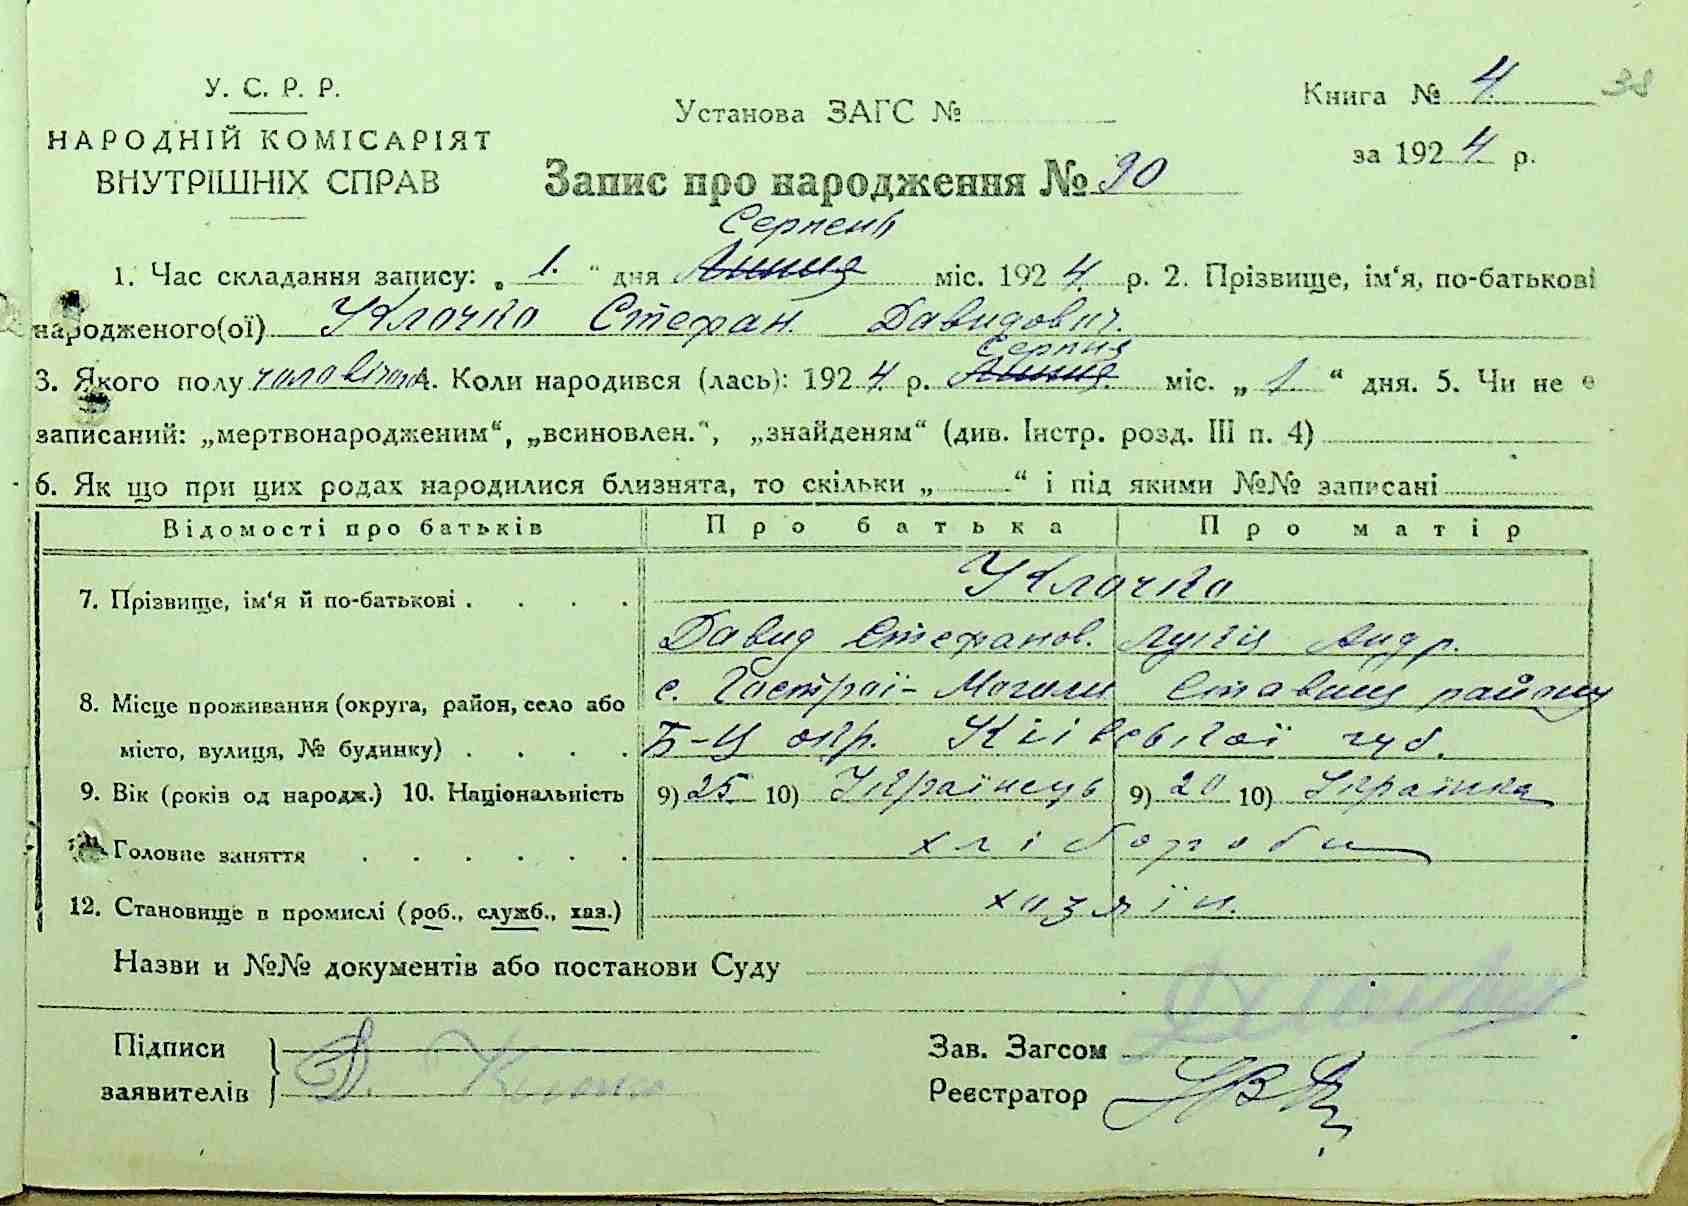 У. С. Р. Р.
НАРОДНІЙ КОМІСАРІЯТ
ВНУТРІШНІХ СПРАВ
Установа ЗАГС №
Книга № 4
38
за 1924 р.
Запис про народження № 90
Серпень
1. Час складання запису: „ 1. “ дня Липня міс. 1924 р. 2. Прізвище, ім‘я, по-батькові
народженого(ої) Клочко Стефан. Давидович.
Серпня
3. Якого полу чоловічого 4. Коли народився (лась): 1924 р. Липня міс. „ 1 “ дня. 5. Чи не є
записаний: „мертвонародженим“, „всиновлен.“, „знайденям“ (див. Інстр. розд. III п. 4)
6. Як що при цих родах народилися близнята, то скільки „ “ і під якими №№ записані
Відомості про батьків Про батька Про матір
7. Прізвище, ім‘я й по-батькові . . . . Клочко
Давид Стефанов. Лукія Андр.
8. Місце проживання (округа, район, село або с. Гострої-Могили Ставищ району
місто, вулиця, № будинку) . . . . Б-Ц окр. Київської губ.
9. Вік (років од народж.) 10. Національність 9) 25 10) Українець 9) 20 10) Українка
Головне заняття . . . . . . хлібороби
12. Становище в промислі (роб., служб., хаз.) хазяїн.
Назви и №№ документів або постанови Суду
Підписи
заявителів Д. Клочко
Зав. Загсом
Реєстратор